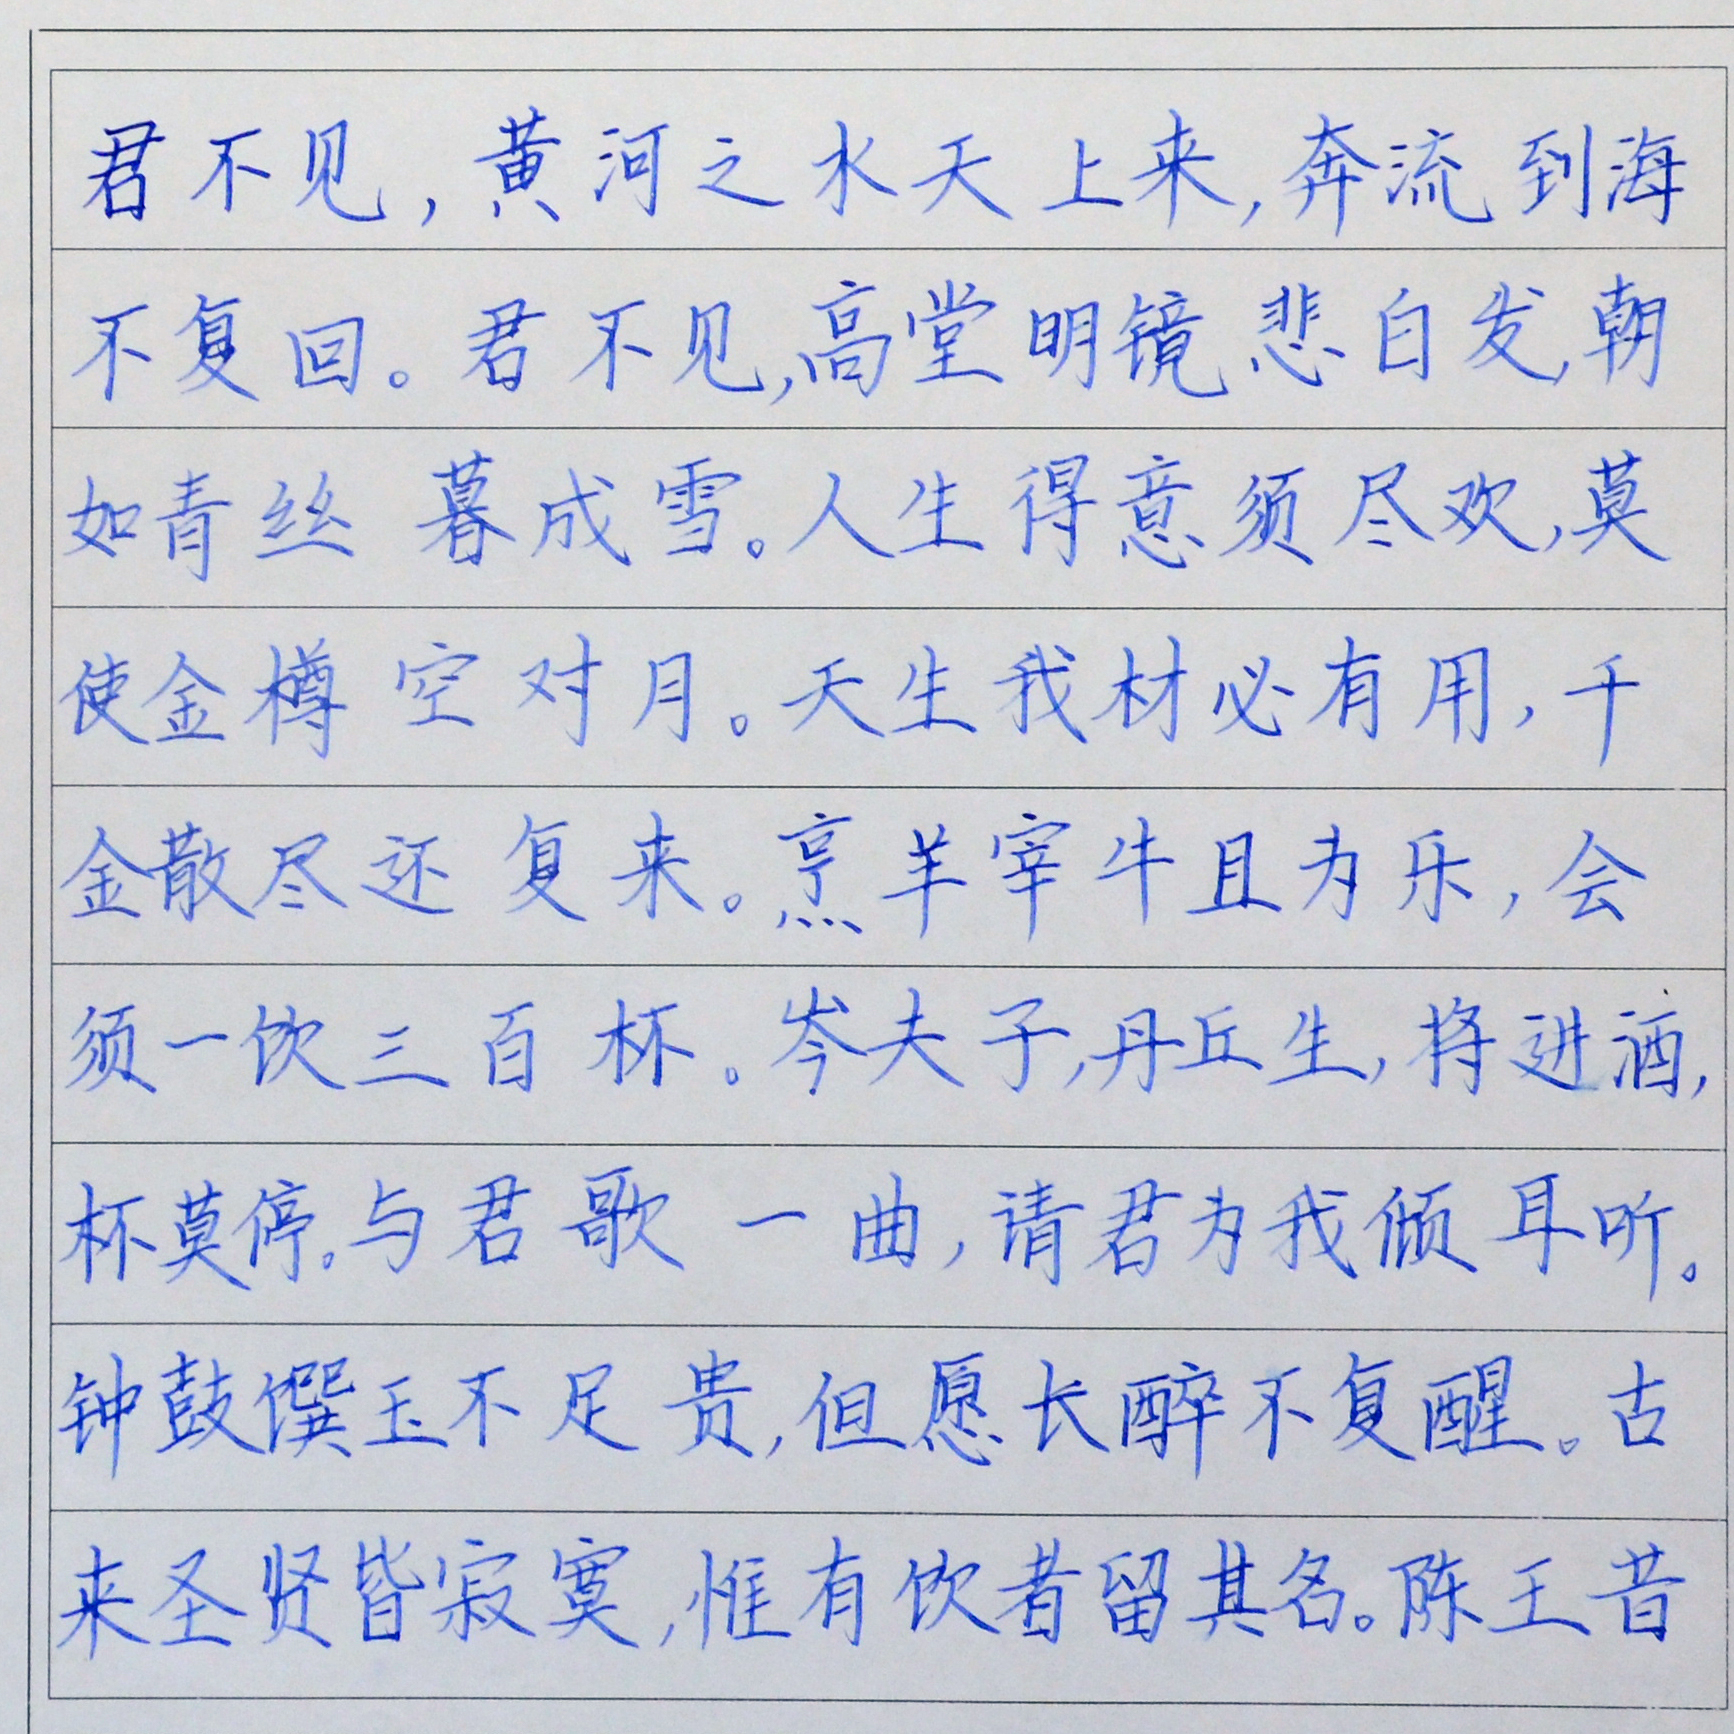 君不见，黄河之水天上来，奔流到海
不复回。君不见，高堂明镜悲白发，朝
如青丝 暮成雪。人生得意须尽欢，莫
使金樽空对月。天生我材必有用，千
金散尽还复来。烹羊宰牛且为乐，会
须一饮三百杯。岑夫子，丹丘生，将进酒，
杯莫停。与君歌一曲，请君为我倾耳听。
钟鼓馔玉不足贵，但愿长醉不复醒。古
来圣贤皆寂寞，惟有饮者留其名。陈王昔